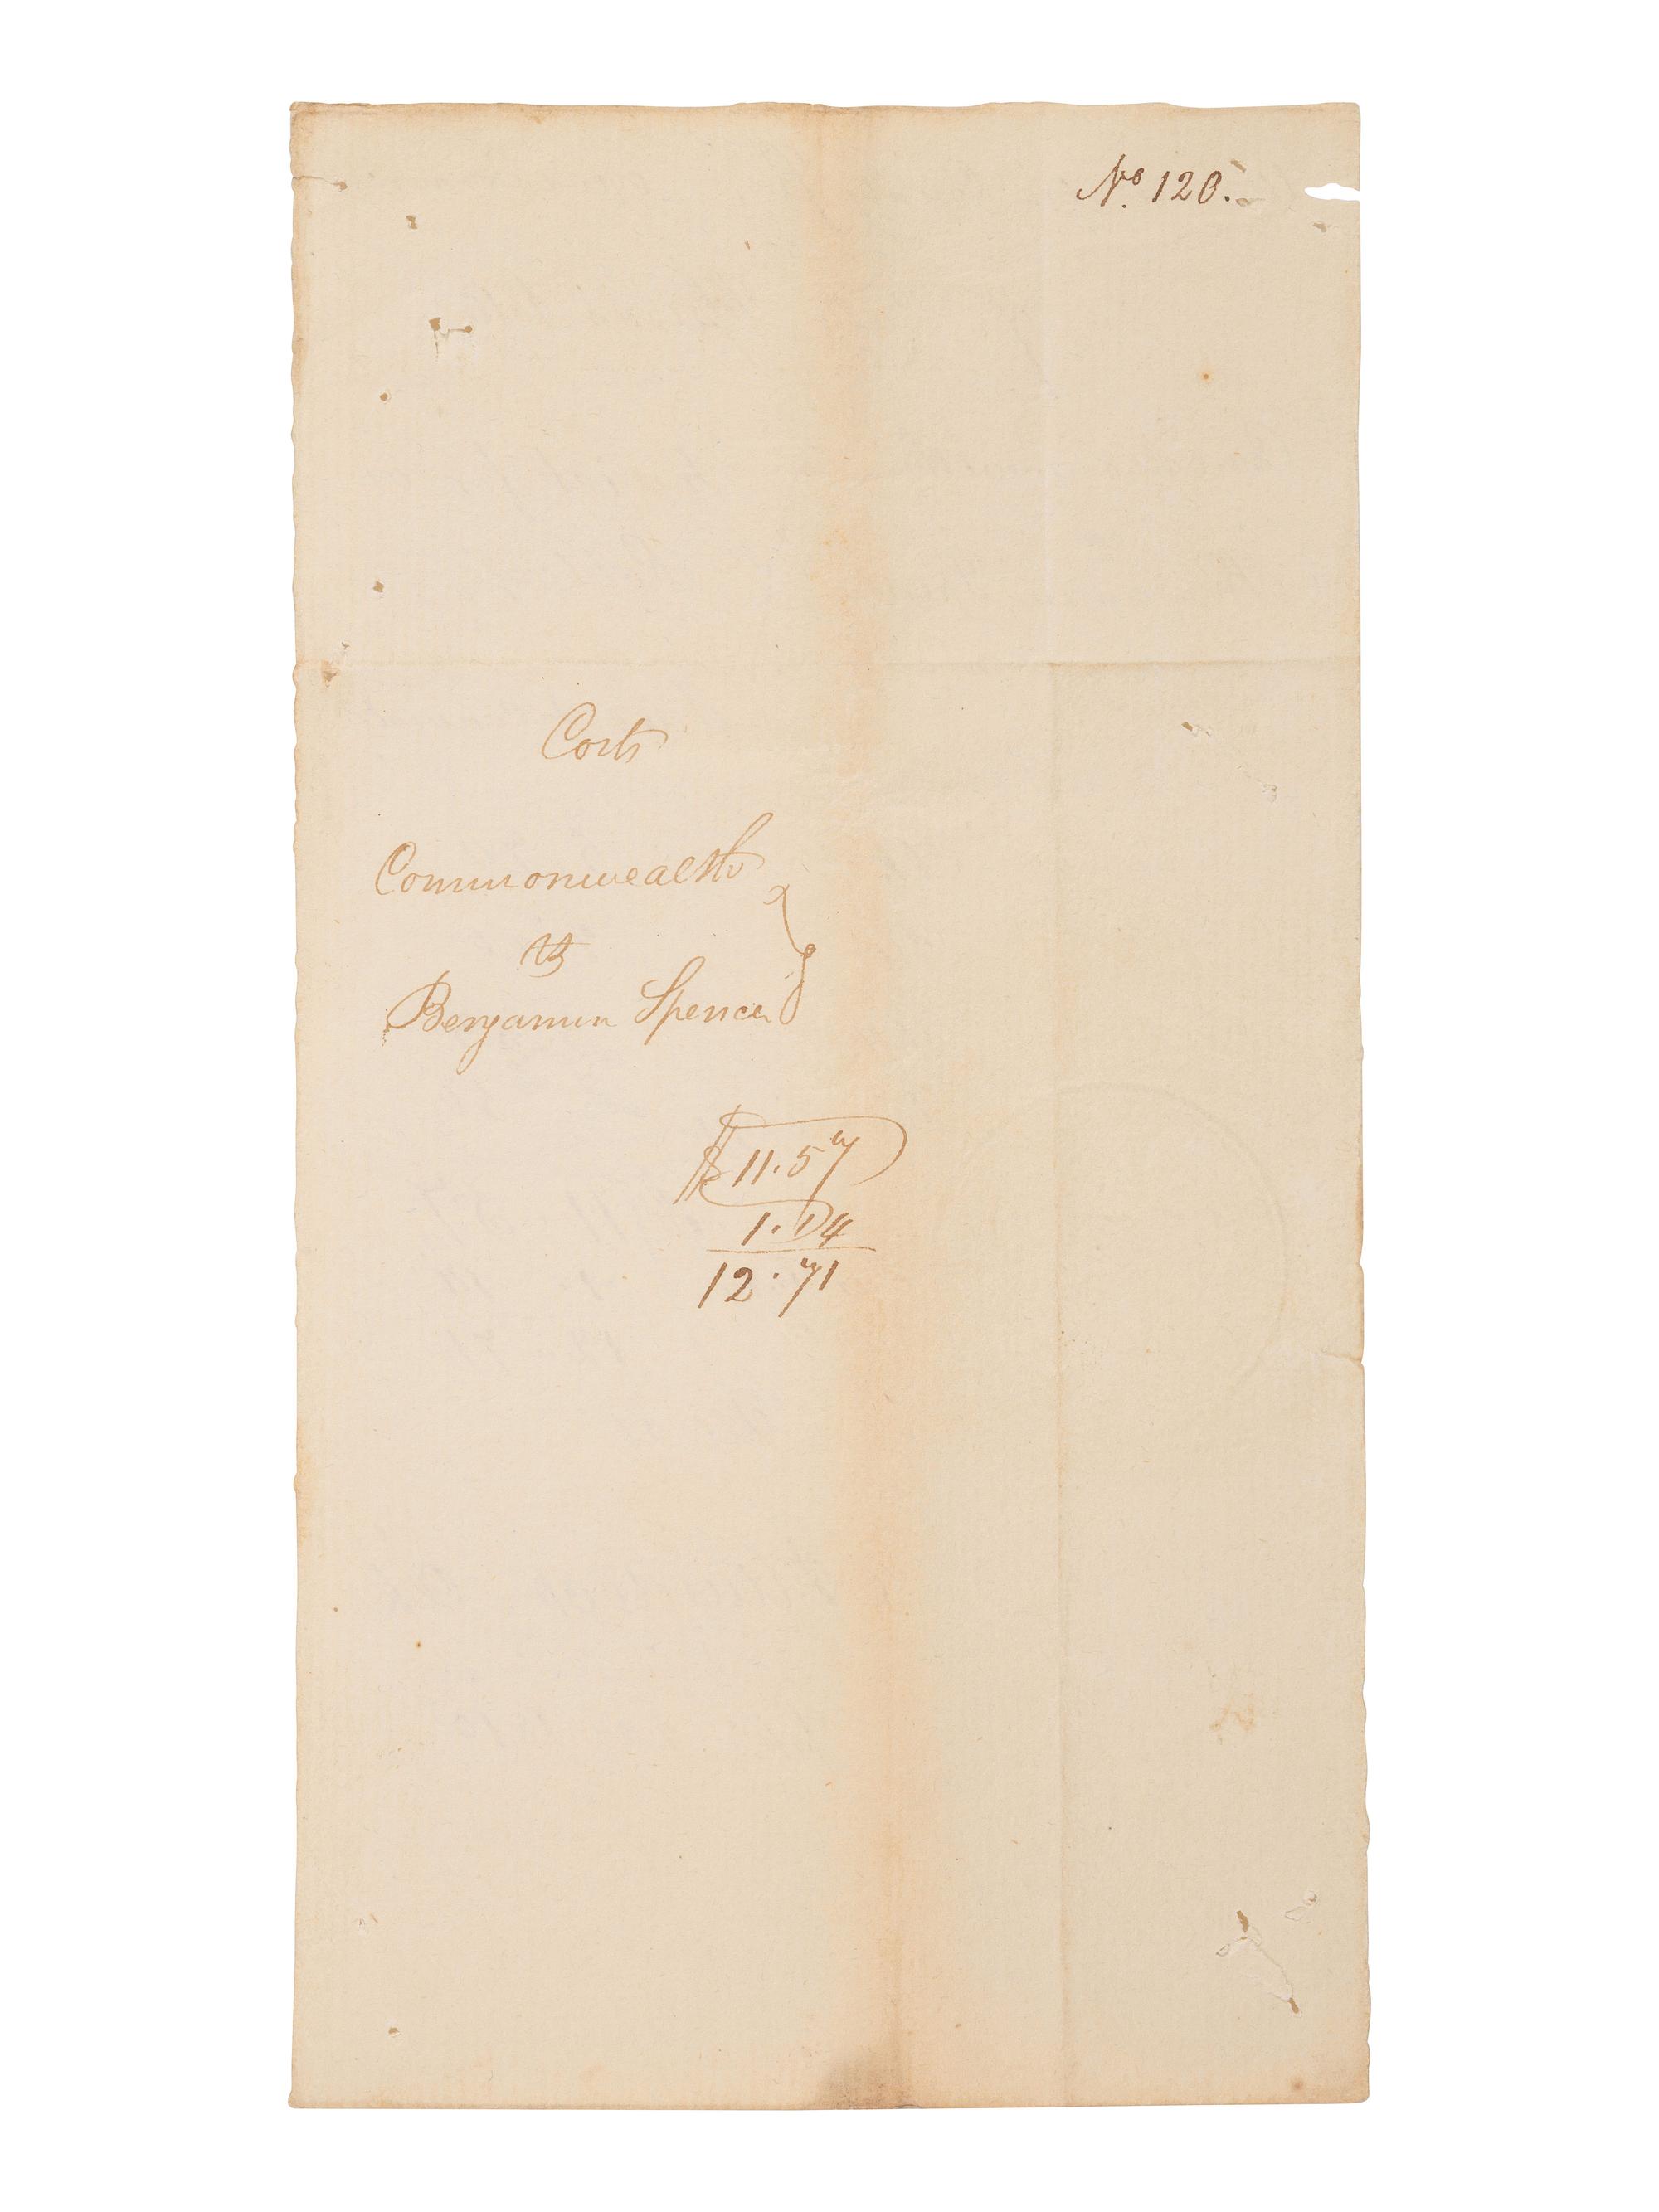 No 120.
Costs
Commonwealth
vs
Benjamin Spencer
$11.57
1.14
12.71